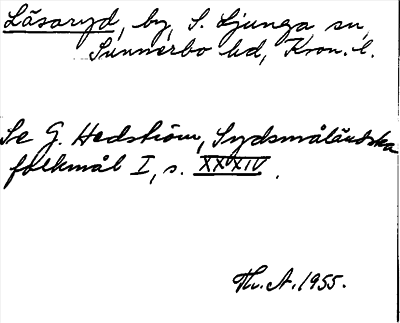 Läsaryd, by, S. Ljunga sn,
Sunnerbo hd, Kron. l.
Se G. Hedström, Sydsmåländska
folkmål I, s. XXXIV.
Th. A. 1955.